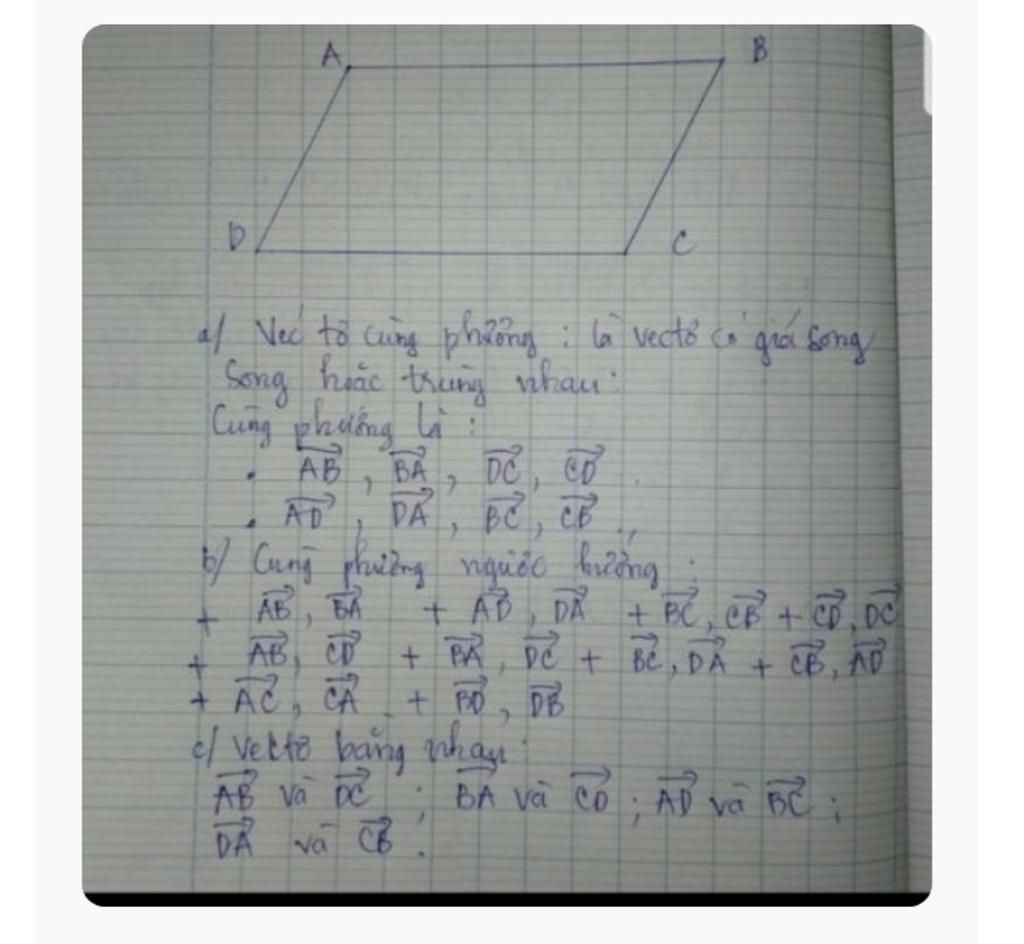 A
B
D
C
a/ Vectơ cùng phương : là vectơ có giá song
song hoặc trùng nhau :
Cùng phương là :
. \overrightarrow{AB} , \overrightarrow{BA} , \overrightarrow{DC} , \overrightarrow{CD} .
. \overrightarrow{AD} , \overrightarrow{DA} , \overrightarrow{BC} , \overrightarrow{CB} .
b/ Cùng phương ngược hướng :
+ \overrightarrow{AB} , \overrightarrow{BA} + \overrightarrow{AD} , \overrightarrow{DA} + \overrightarrow{BC} , \overrightarrow{CB} + \overrightarrow{CD} , \overrightarrow{DC}
+ \overrightarrow{AB} , \overrightarrow{CD} + \overrightarrow{BA} , \overrightarrow{DC} + \overrightarrow{BC} , \overrightarrow{DA} + \overrightarrow{CB} , \overrightarrow{AD}
+ \overrightarrow{AC} , \overrightarrow{CA} + \overrightarrow{BD} , \overrightarrow{DB}
c/ Vectơ bằng nhau :
\overrightarrow{AB} và \overrightarrow{DC} ; \overrightarrow{BA} và \overrightarrow{CD} ; \overrightarrow{AD} và \overrightarrow{BC} ;
\overrightarrow{DA} và \overrightarrow{CB} .